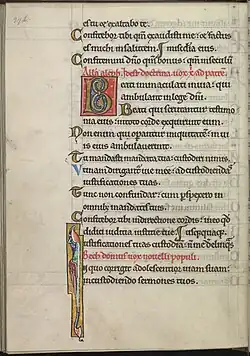 es tu et exaltabo te.
Confitebor tibi qm̄ exaudisti me: et factus
es michi in salutem.
Confitemini dn̄o qm̄ bonus: qm̄ in sec̄lm̄
Beati immaculati in via: qui
ambulant in lege dn̄i.
Beati qui scrutantur testimo
nia eius: in toto corde exquirunt eum.
Non enim qui operantur iniquitatē: in vi
is eius ambulaverunt.
Tu mandasti mandata tua: custodiri nimis.
Utinam dirigantur vie mee: ad custodiendas
iustificationes tuas.
Tunc non confundar: cum p̄spexero in
omnib; mandatis tuis.
Confitebor tibi in directione cordis: in eo qd̄
didici iudicia iustitie tue.
Iustificationes tuas custodiā: n̄ me derelinq̄s
Beth domus vox novelli populi.
In quo corrigit adolescentior viam suam:
in custodiendo sermones tuos.